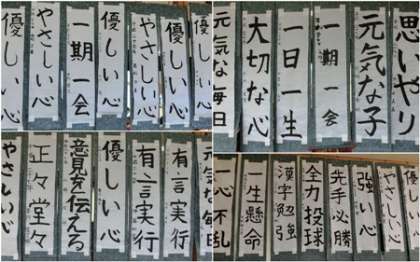 優しい心
やさしい心
一期一会
やさしい心
優しい心
優しい心
元気な毎日
大切な心
一日一生
一期一会
元気な子
思いやり
やさしい心
正々堂々
意見を伝える
優しい心
有言実行
有言実行
元気な毎日
一心不乱
一生懸命
漢字勉強
全力投球
先手必勝
強い心
やさしい心
優しい心